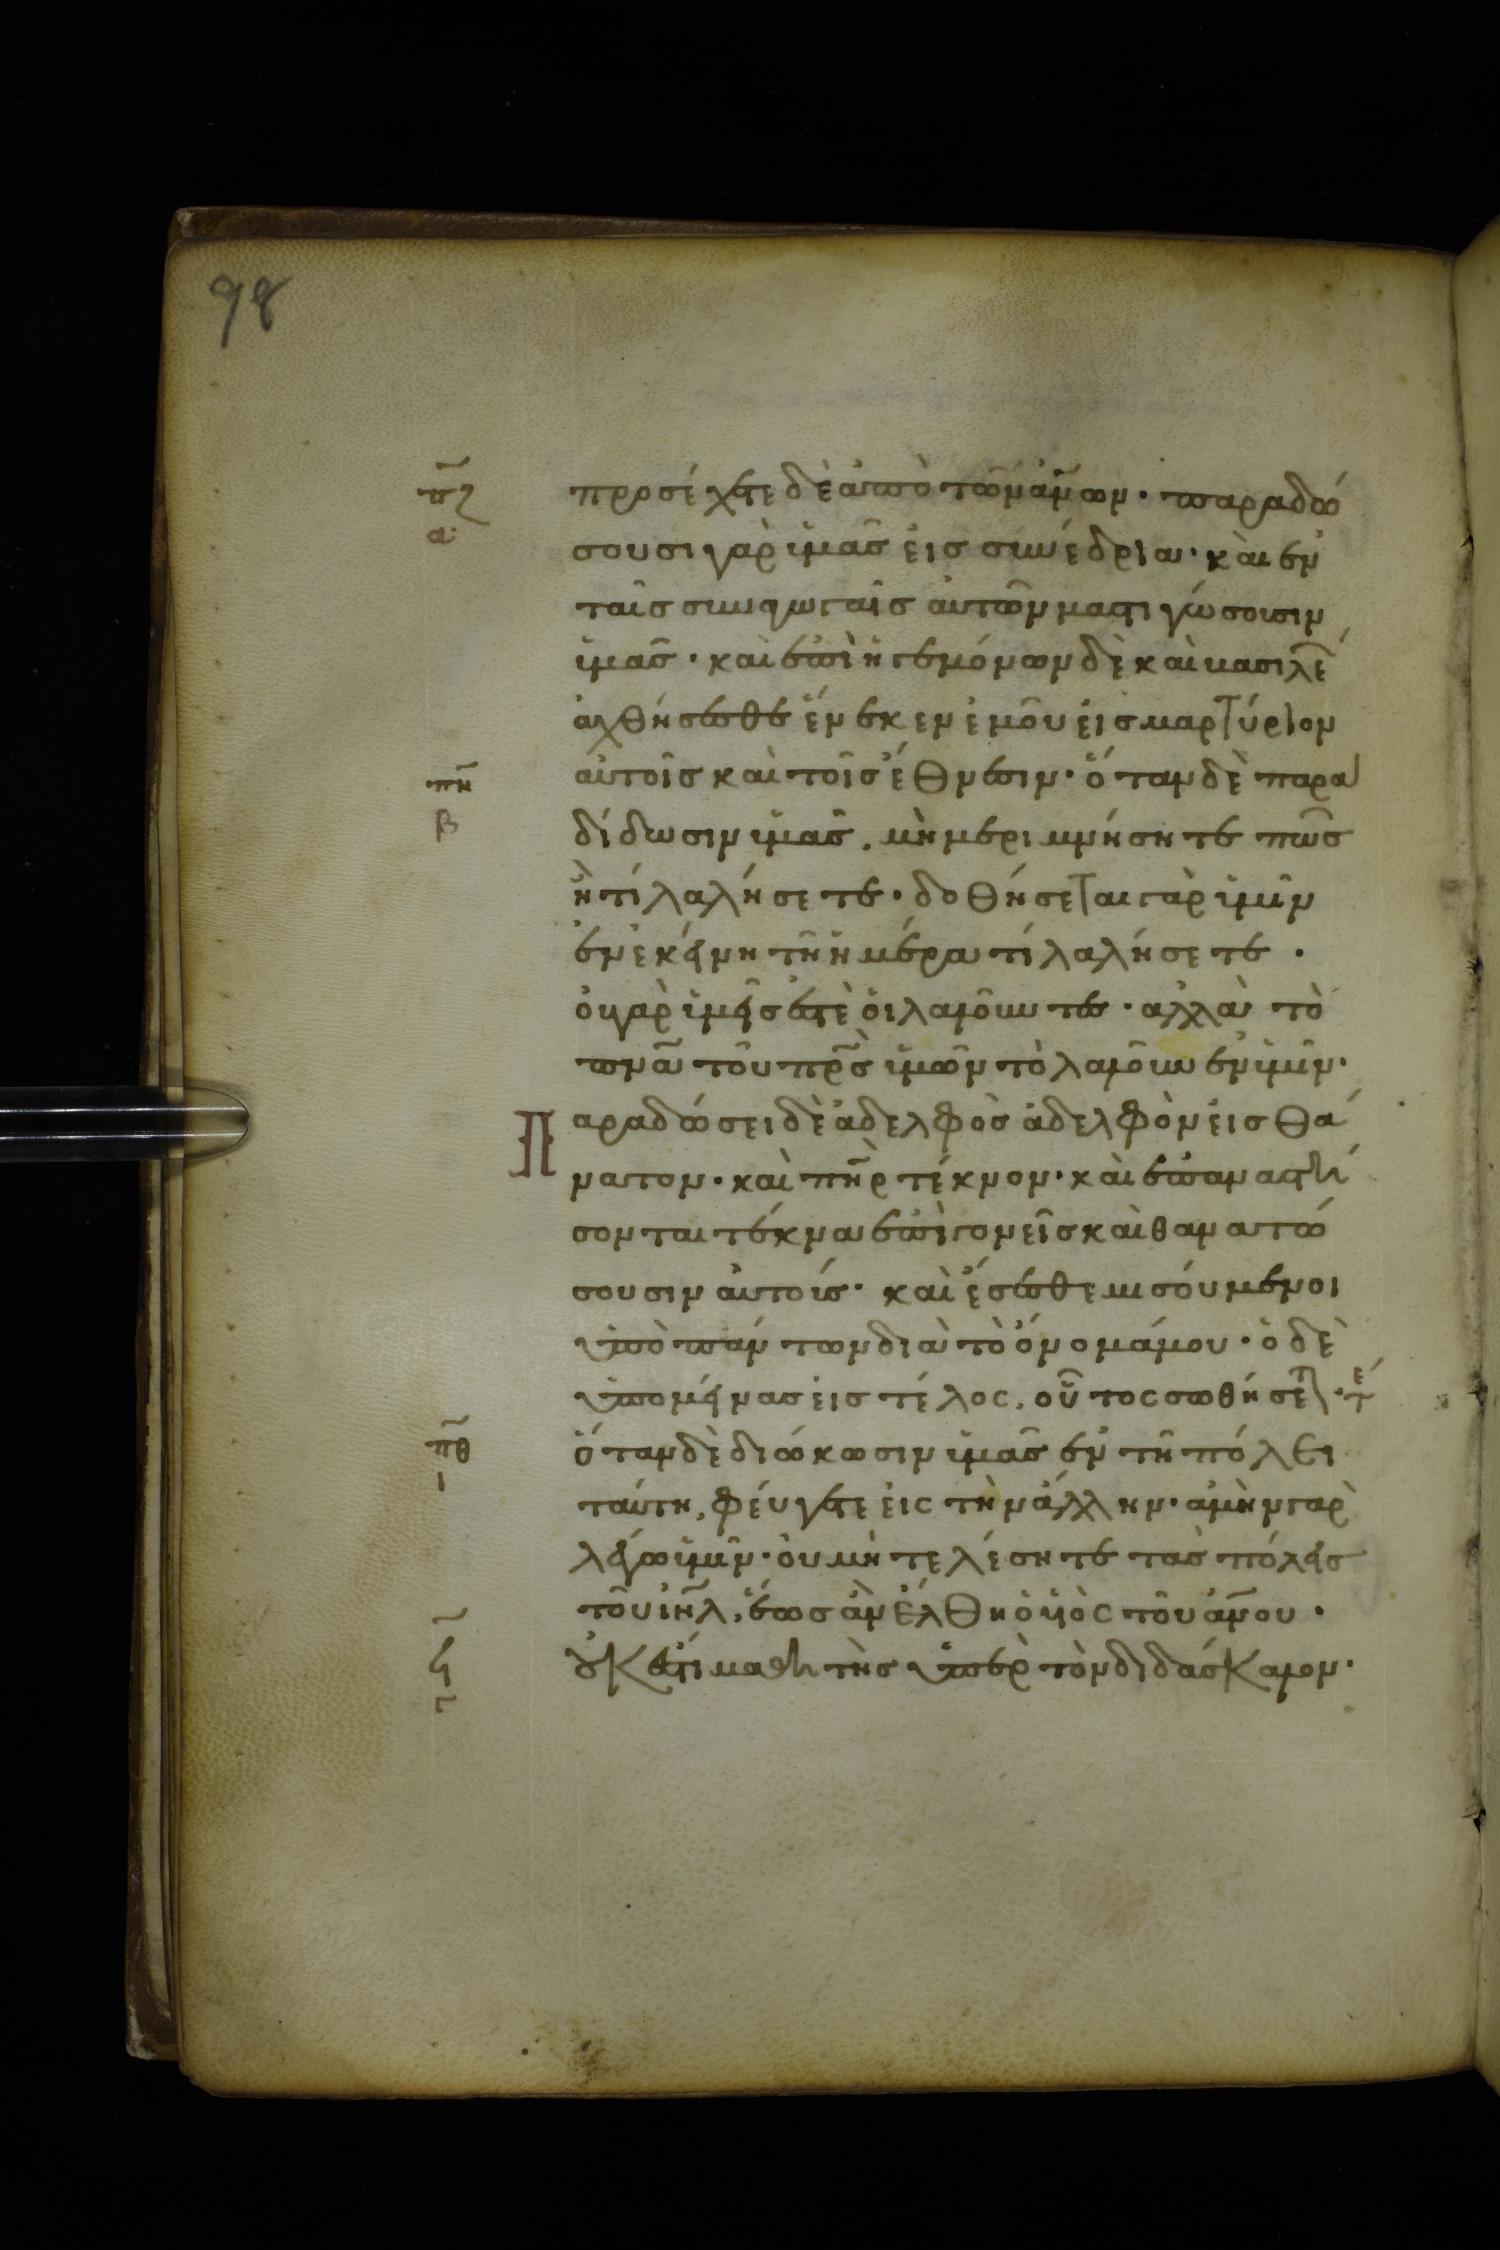 98
πζ
α
προσέχετε δὲ ἀπὸ τῶν ἀνων· παραδώ
σουσι γὰρ ὑμᾶς εἰς συνέδρια· καὶ ἐν
ταῖς συναγωγαῖς αὐτῶν μαστιγώσουσιν
ὑμᾶς· καὶ ἐπὶ ἡγεμόνων δὲ καὶ βασιλεῖ
ἀχθήσεσθε ἕνεκεν ἐμοῦ εἰς μαρτύριον
πη
β
αὐτοῖς καὶ τοῖς ἔθνεσιν· ὅταν δὲ παρα
δίδωσιν ὑμᾶς. μὴ μεριμνήσητε πῶς
ἢ τί λαλήσετε· δοθήσεται γὰρ ὑμῖν
ἐν ἐκείνη τῆ ἡμέρα τί λαλήσετε·
οὐ γὰρ ὑμεῖς ἐστὲ οἱ λαλοῦντες· ἀλλὰ τὸ
πνα τοῦ πρς ὑμῶν τὸ λαλοῦν ἐν ὑμῖν·
Παραδώσει δὲ ἀδελφὸς ἀδελφὸν εἰς θά
νατον· καὶ πηρ τέκνον· καὶ ἐπαναστή
σονται τέκνα ἐπὶ γονεῖς καὶ θανατώ
σουσιν αὐτούς· καὶ ἔσεσθε μισούμενοι
ὑπὸ πάντων διὰ τὸ ὄνομά μου· ὁ δὲ
ὑπομείνας εἰς τέλος, οὗτος σωθήσεται· τέ
πθ
ι
ὅταν δὲ διώκωσιν ὑμᾶς ἐν τῆ πόλει
ταύτη, φεύγετε εἰς τὴν ἄλλην· ἀμὴν γὰρ
λέγω ὑμῖν· οὐ μὴ τελέσητε τὰς πόλεις
τοῦ ιηλ, ἕως ἂν ἔλθη ὁ υἱὸς τοῦ ἀνου·
ϟ
γ
οὐκ ἔστι μαθητὴς ὑπὲρ τὸν διδάσκαλον·